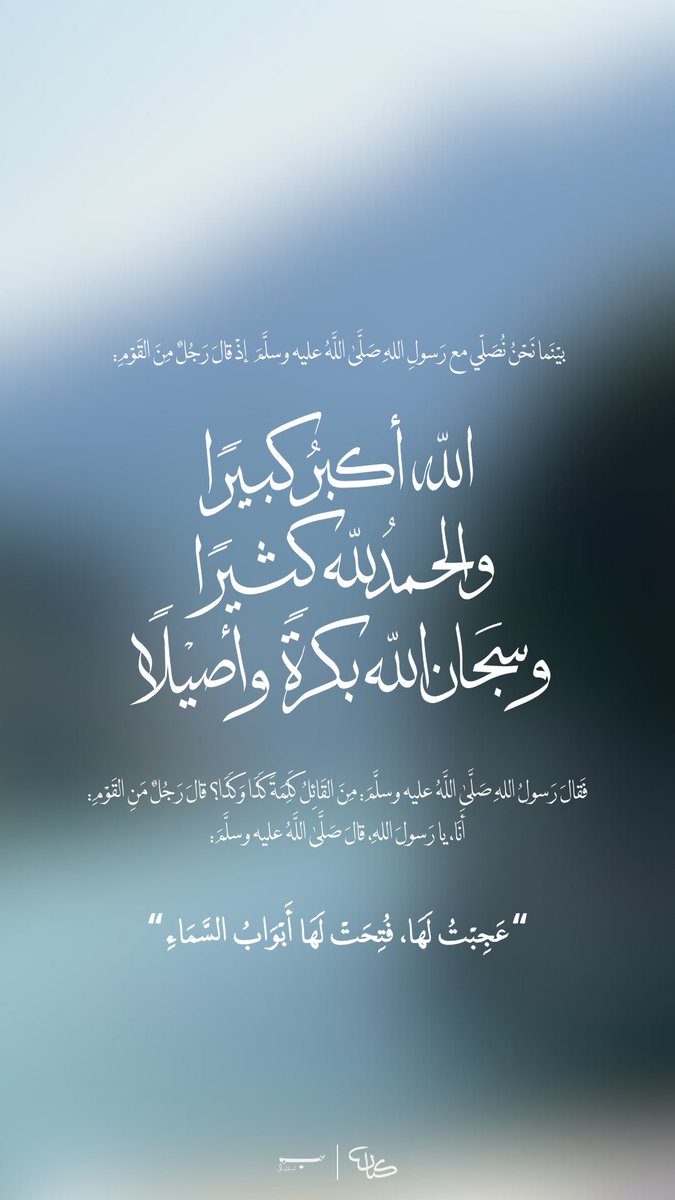 بيْنَما نَحْنُ نُصَلِّي مع رَسولِ اللهِ صَلَّىٰ اللَّهُ عليه وسلَّمَ إذْ قالَ رَجُلٌ مِنَ القَوْمِ:
الله أكبرُ كبيرًا
والحمدُ لله كثيرًا
وسبحان الله بكرةً وأصيلًا
فَقالَ رَسولُ اللهِ صَلَّىٰ اللَّهُ عليه وسلَّمَ: مِنَ القَائِلُ كَلِمَةَ كَذَا وَكَذَا؟ قالَ رَجُلٌ مَنِ القَوْمِ:
أَنَا، يا رَسولَ اللهِ، قالَ صَلَّىٰ اللَّهُ عليه وسلَّمَ:
“عَجِبْتُ لَهَا، فُتِحَتْ لَهَا أَبْوَابُ السَّمَاءِ“